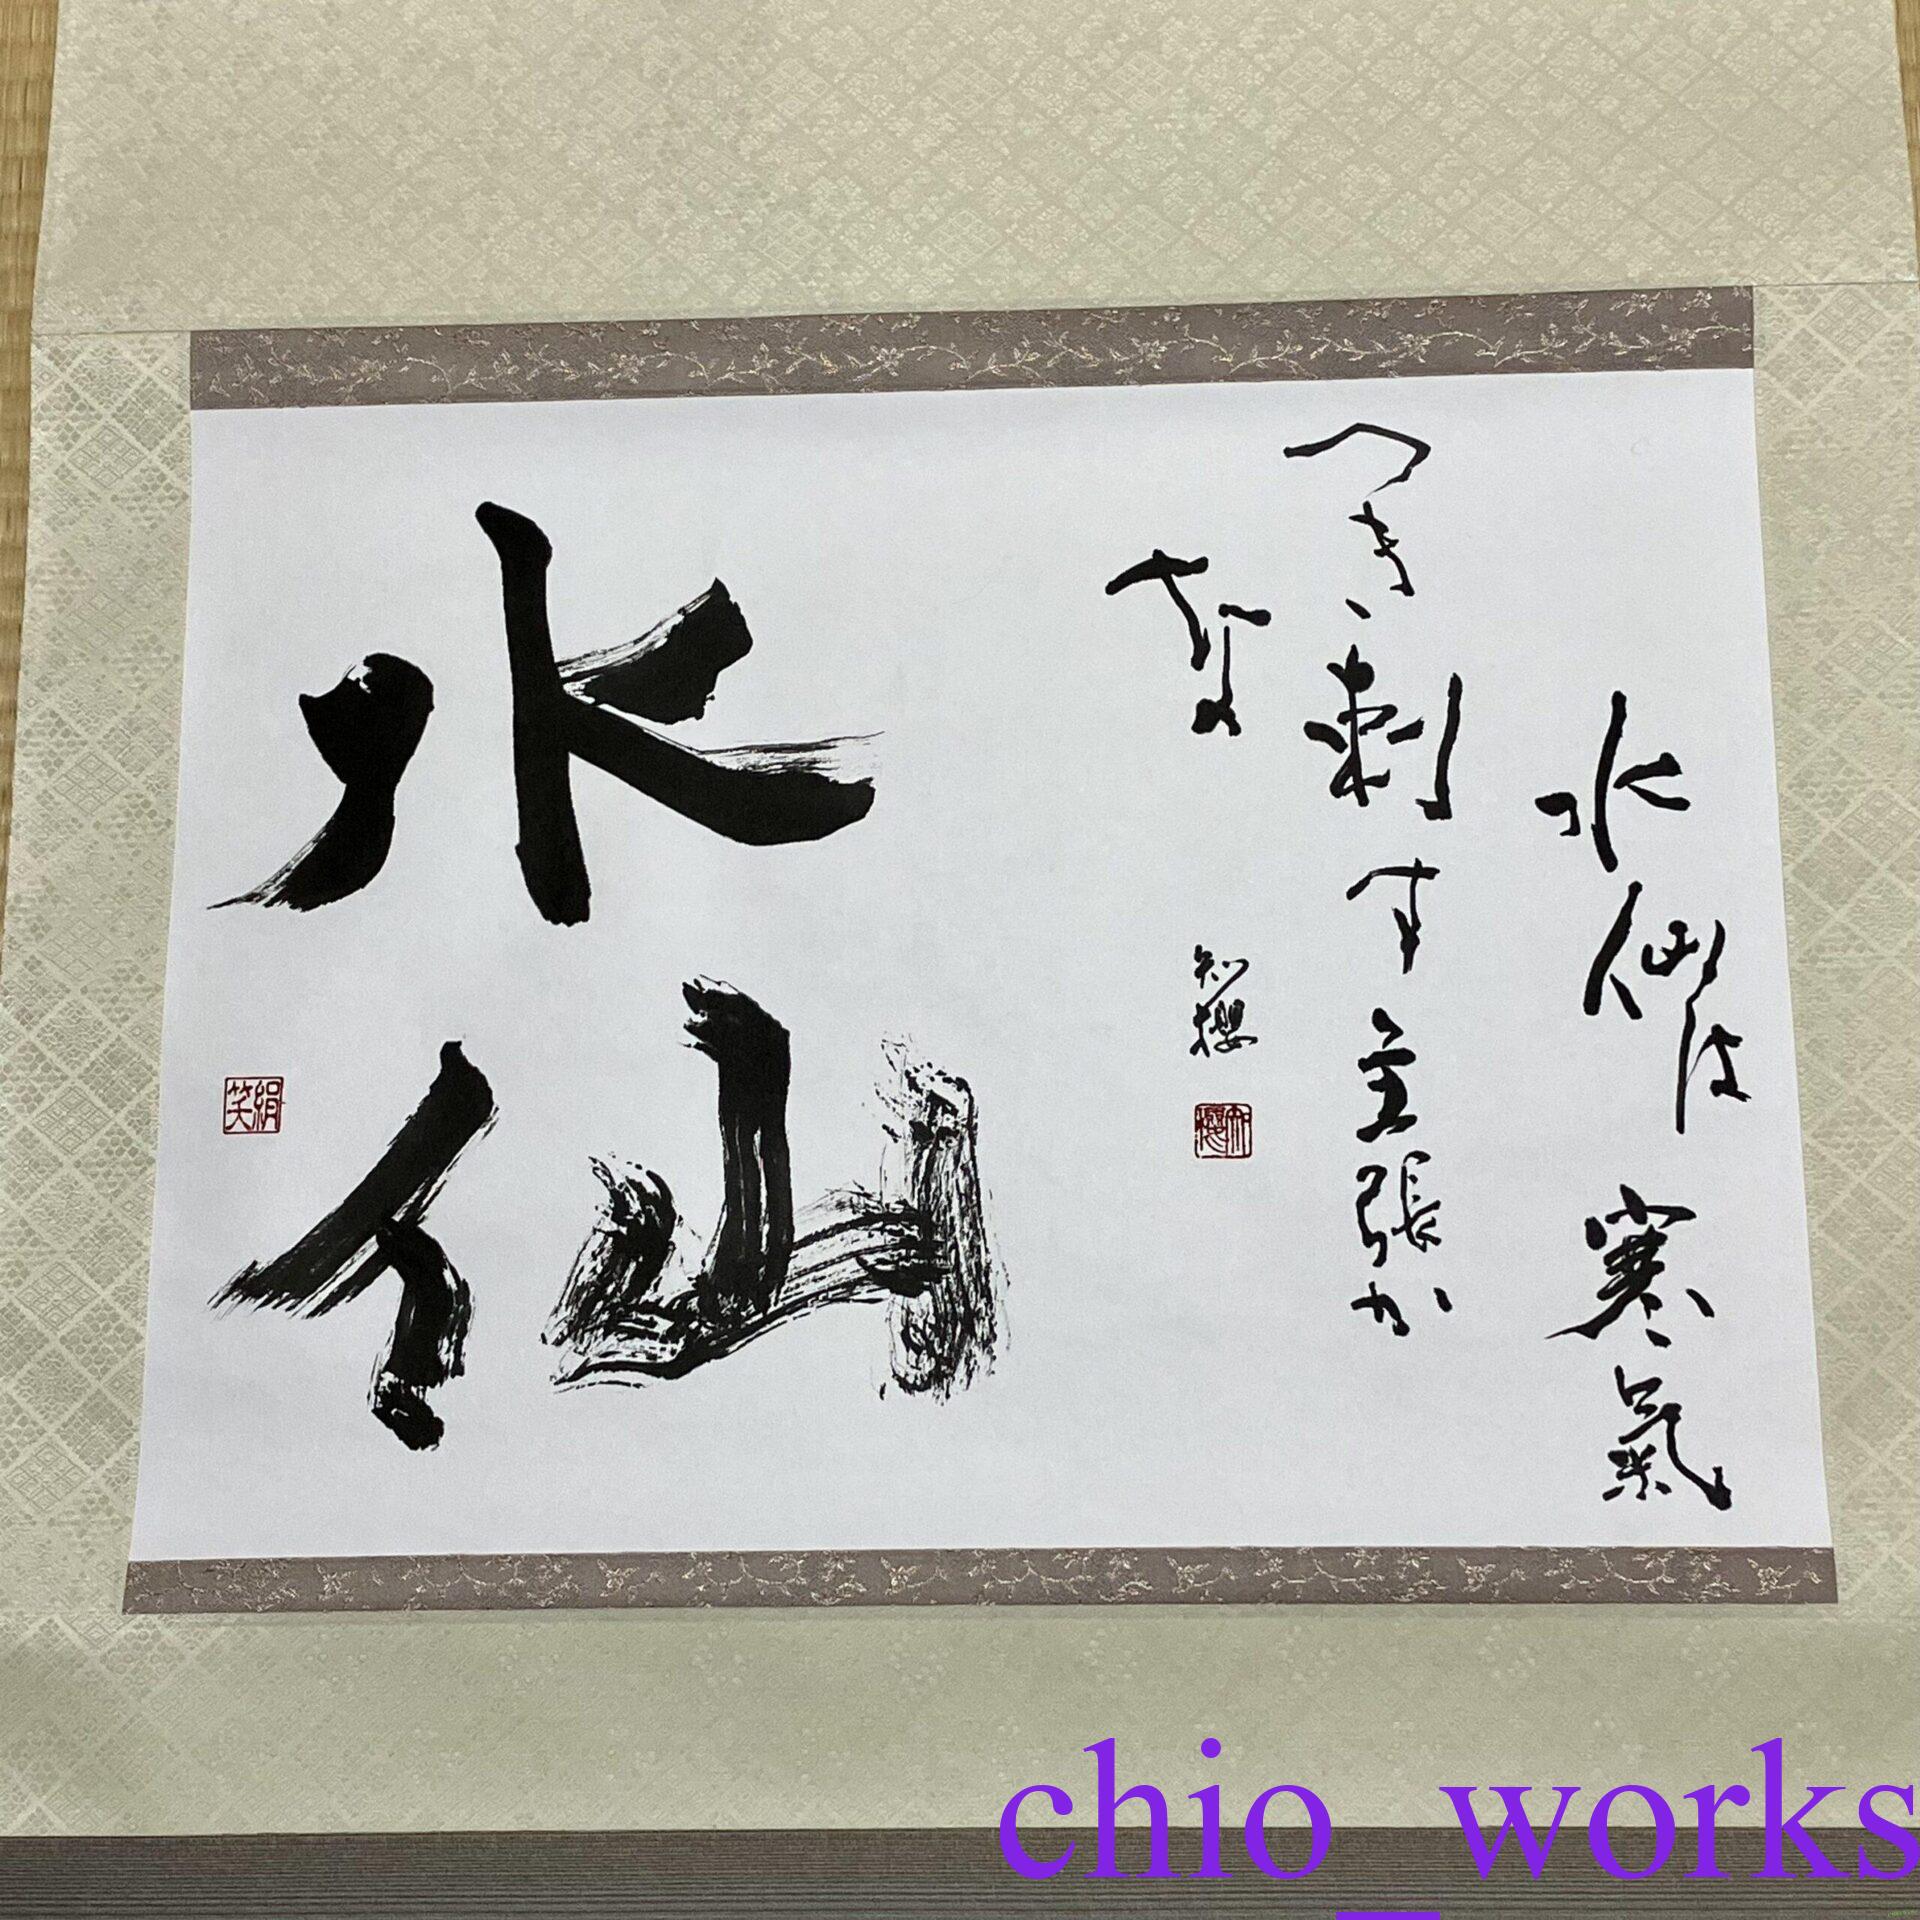 水仙は寒氣
つき刺す主張か
な
知櫻
知櫻
水仙
絹笑
chio_works